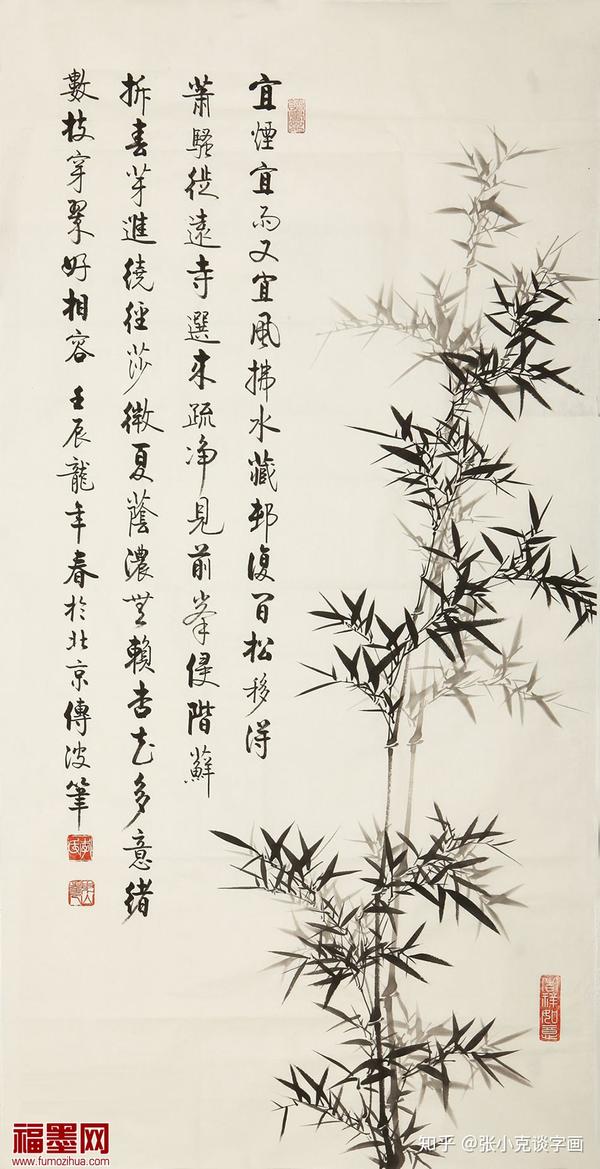 宜煙宜雨又宜風拂水藏邨復間松移得
蕭騷從遠寺選來疏净見前峯侵階蘚
拆春芽進繞徑莎微夏蔭濃無賴杏花多意緒
數枝穿翠好相容 壬辰龍年春於北京傳波筆
吉祥如意
福墨网
www.fumozihua.com
知乎 @张小克谈字画